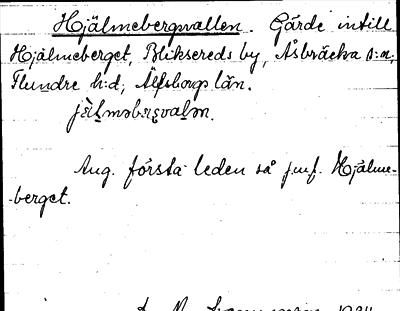 Hjälmebergsvallen. Gärde intill
Hjälmeberget, Bliksereds by, Åsbräcka s:n,
Flundre h:d, Älfsborgs län.
Ang. första leden så jmf. Hjälme-
-berget.